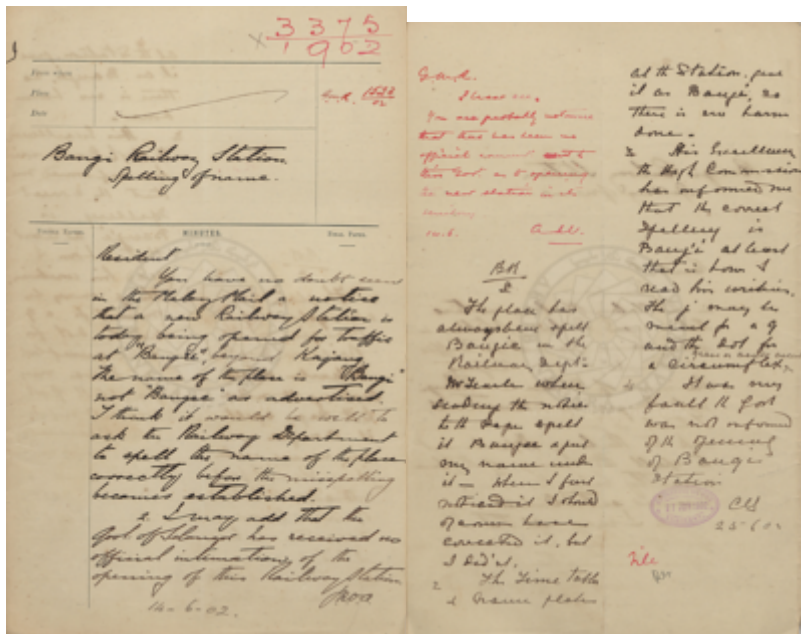 3375
1902
1522
02
Bangi Railway Station.
Spelling of name.
MINUTES.
Resident
You have no doubt seen
in the Malay Mail a notice
that a new Railway Station is
today being opened for traffic
at "Bangee", beyond Kajang.
The name of the place is "Bangi"
not "Bangee" as advertised.
I think it would be well to
ask the Railway Department
to spell the name of the place
correctly before the misspelling
becomes established.
2. I may add that the
Govt of Selangor has received no
official intimation of the
opening of this Railway Station
14-6-02.
You are probably not aware
that there has been no
official
this Govt. as to opening
new station
The place has
always been spelt
Bangie in the
Railway Dept.
when
sending the notice
to the spelt
it Bangee & put
my name under
it — When I first
noticed it I should
of course have
corrected it, but
I did'nt.
2 The Time Table
& name plates
at the Station, give
it as Bangi, so
there is no harm
done.
3 His Excellency
the High Commissioner
has informed me
that the correct
spelling is
at least
that is how I
read his writing.
The j may be
meant for a g
and the dot for
a circumflex.
It was my
fault the Govt
was not informed
of the opening
of Bangi
Station
25-6-02
File